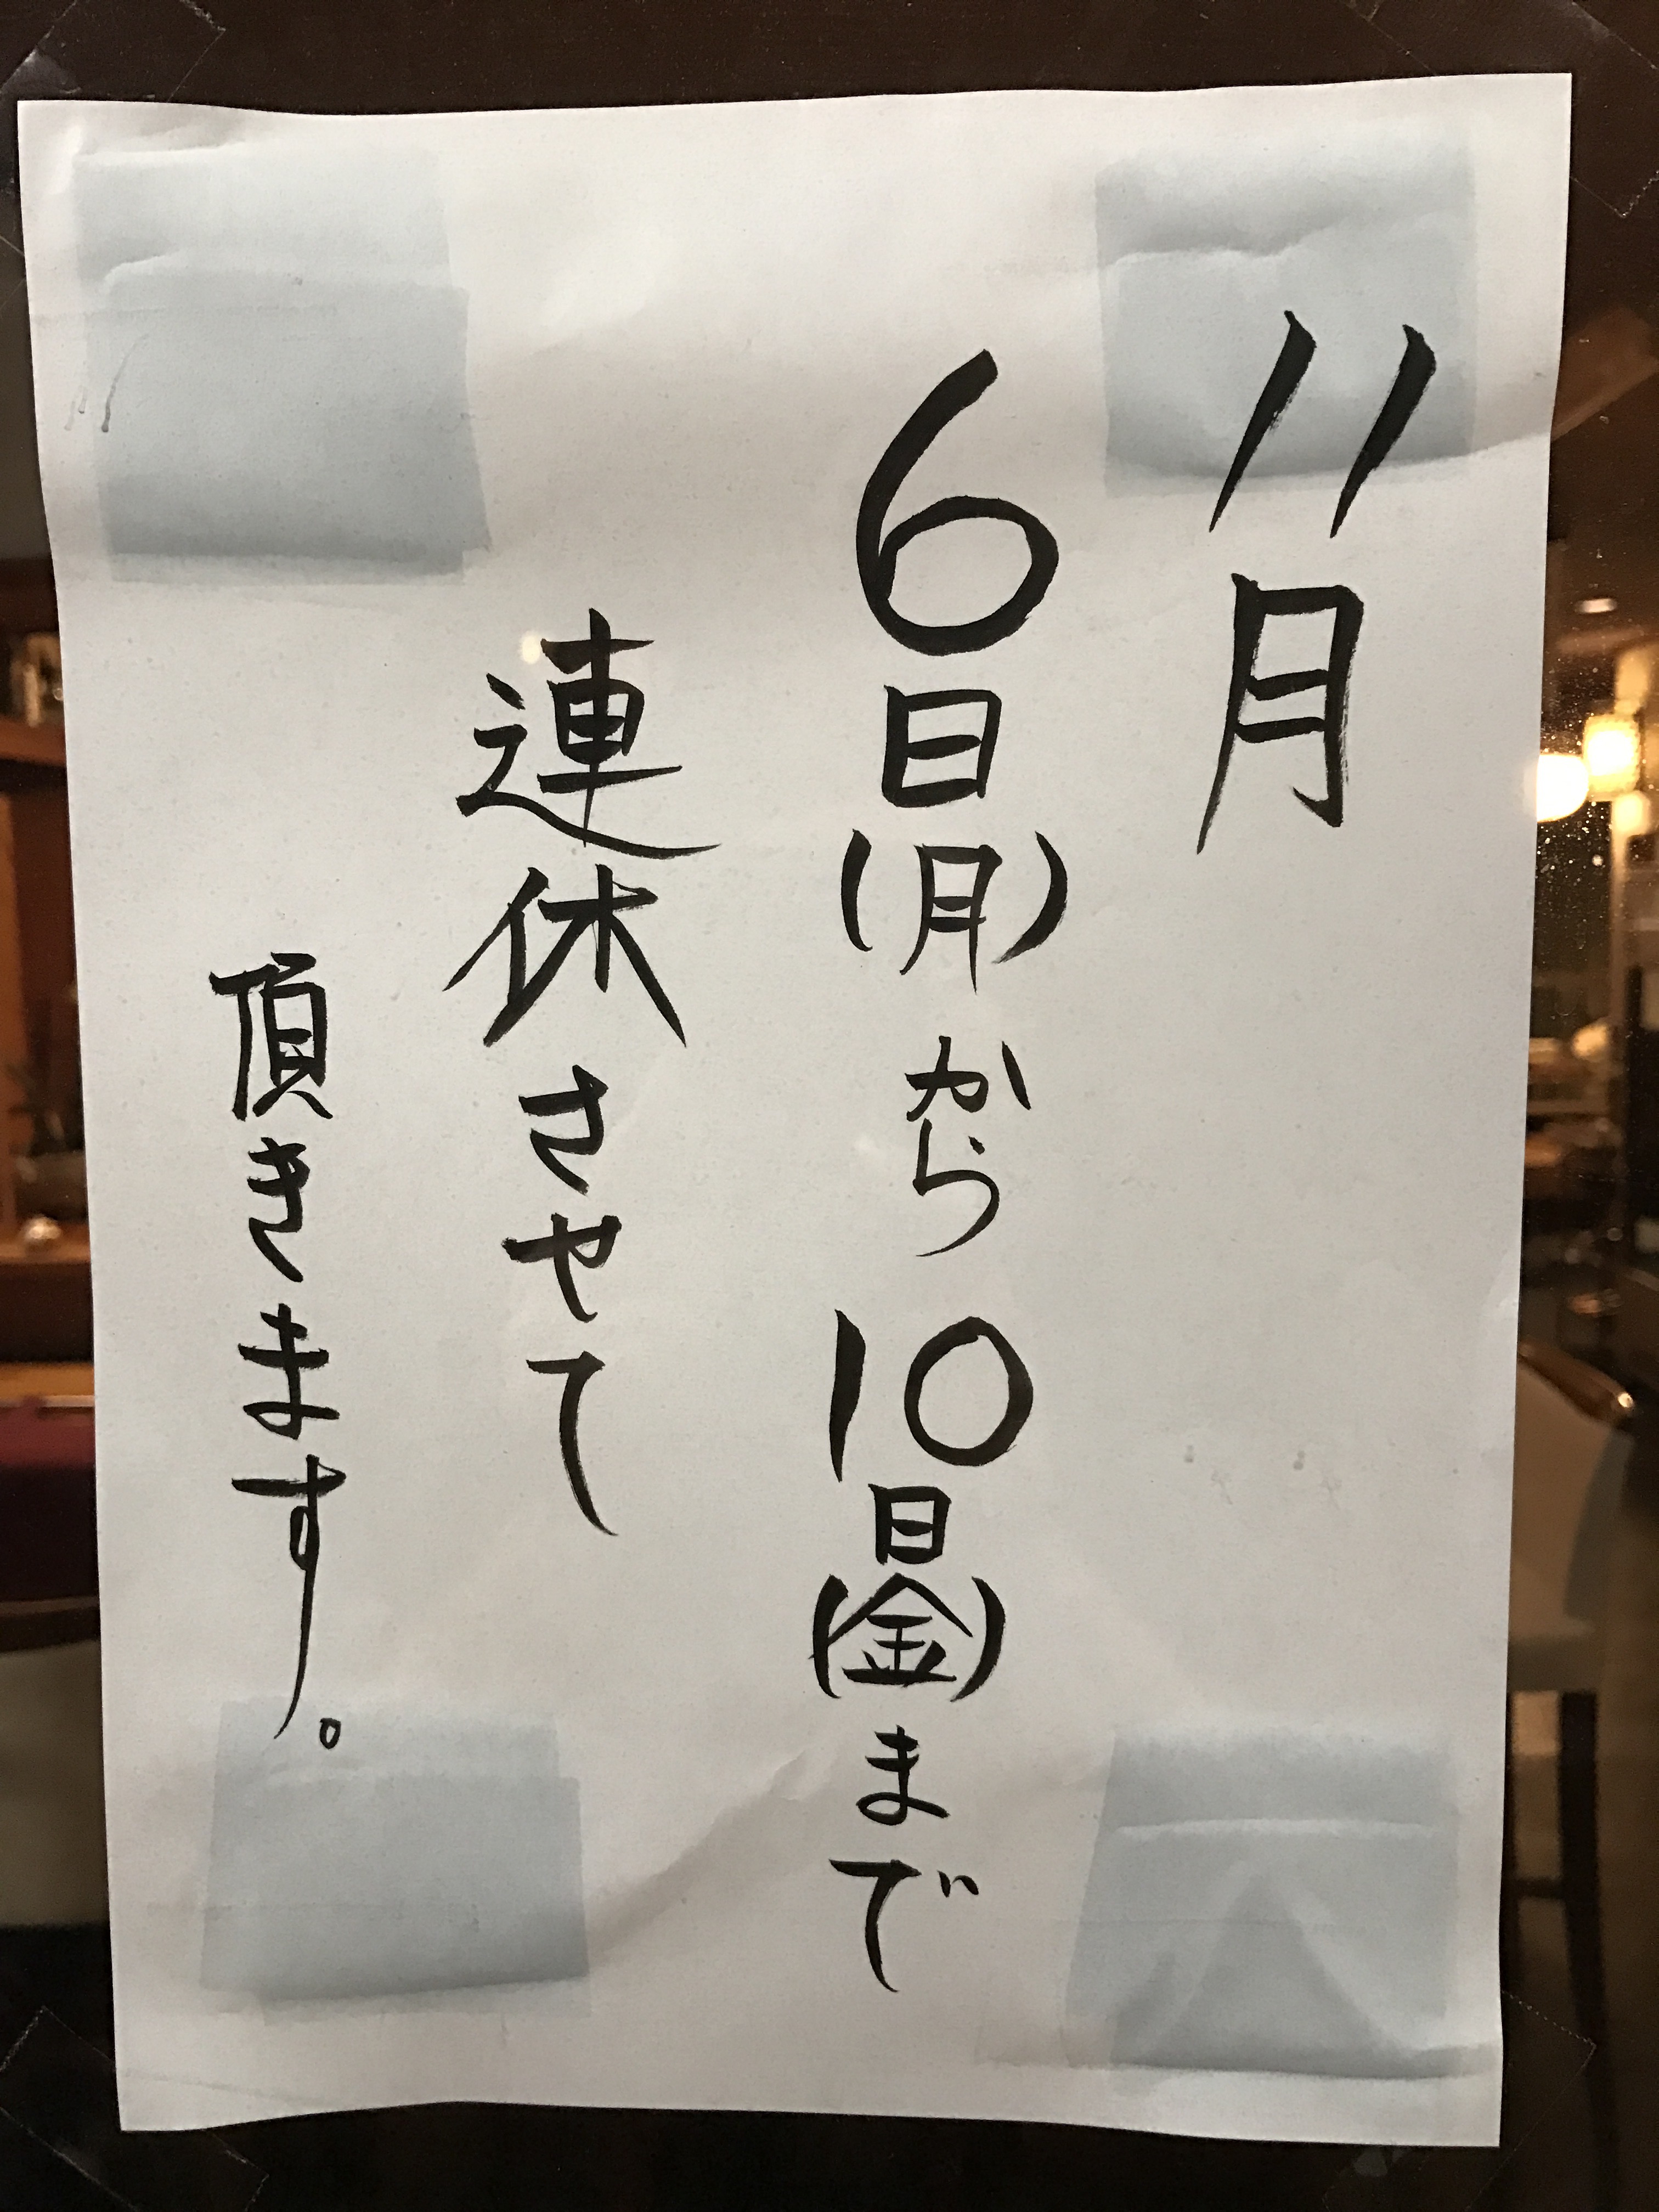 11月
6日(月)から10日(金)まで
連休させて
頂きます。